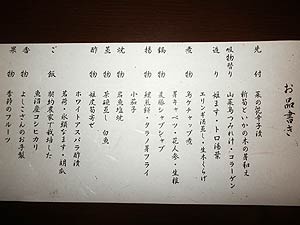 お品書き
先付 菜の花辛子漬
新筍といかの木の芽和え
吸物替り 山菜鳥つみれ汁・コラーゲン
造り 姫ます・トロ湯葉
エリンギ酒蒸し・生木くらげ
煮物 鳥ケチャップ煮
芽キャベツ・花人参・生椎
鍋 麦豚シャブシャブ
揚物 鰻煎餅・グラノ芽フライ
小茄子
焼物 岩魚塩焼
蒸物 茶碗蒸し 白魚
酢物 姫皮筍寄せ
ホワイトアスパラ酢漬
茗荷・水頭なます・胡瓜
ご飯 契約農家で栽培した
魚沼産コシヒカリ
香物 よしこさんのお手製
果物 季節のフルーツ